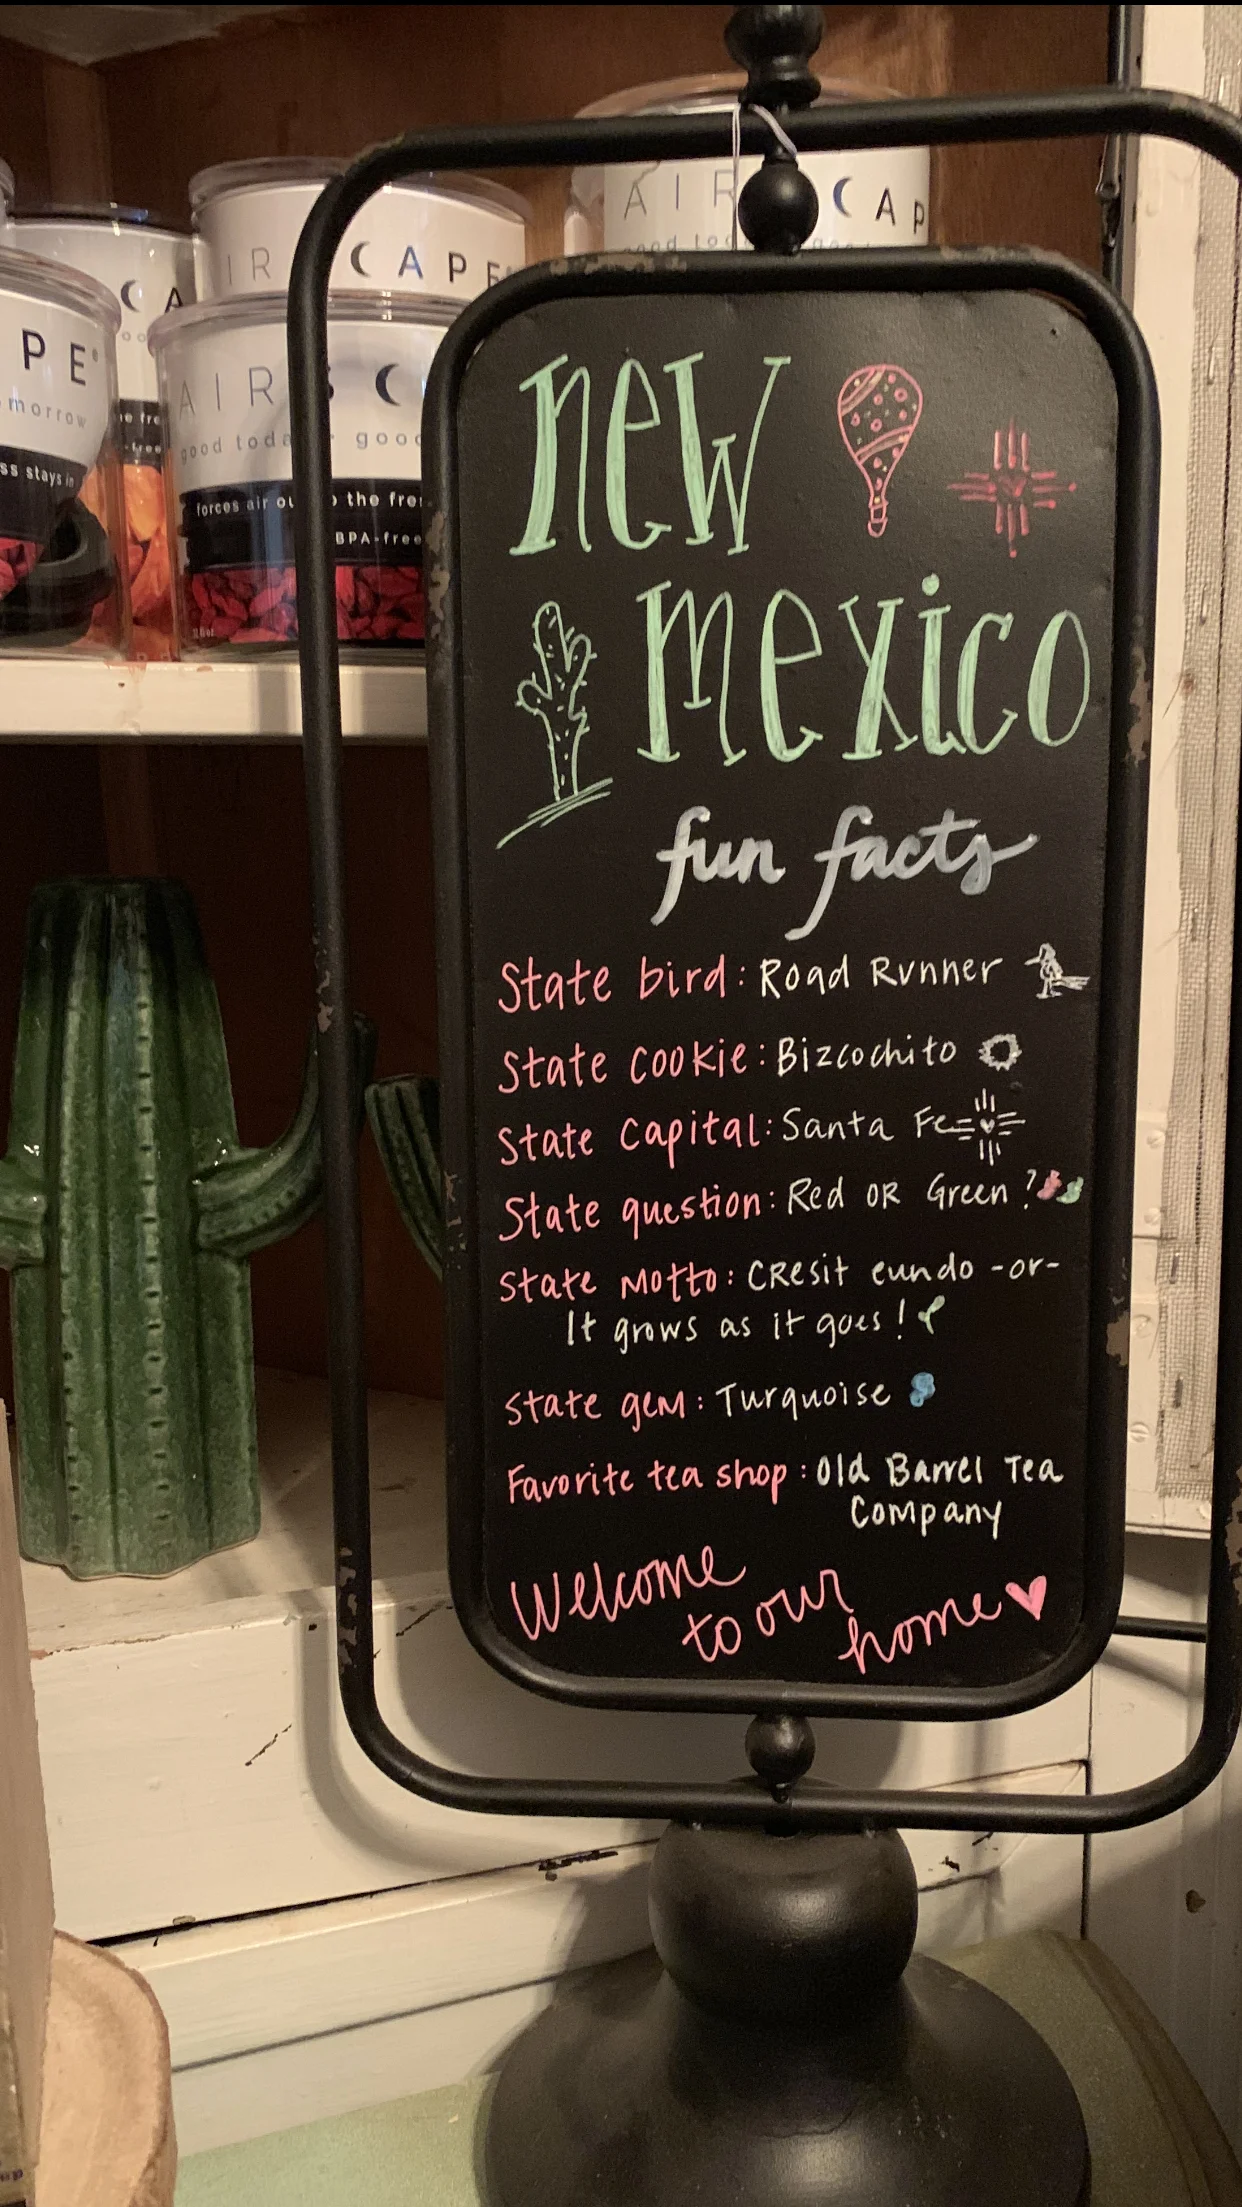 AIR CAP
good tod
IR CAPE
CA
PE®
morrow
ss stays in
AIRSC
good toda good
forces air ou o the fre
BPA-free
new
mexico
fun facts
State bird: Road Runner
State cookie: Bizcochito
State capital: Santa Fe
State question: Red OR Green?
State Motto: CResit eundo -or-
It grows as it goes!
State gem: Turquoise
Favorite tea shop: Old Barrel Tea
Company
Welcome
to our
home